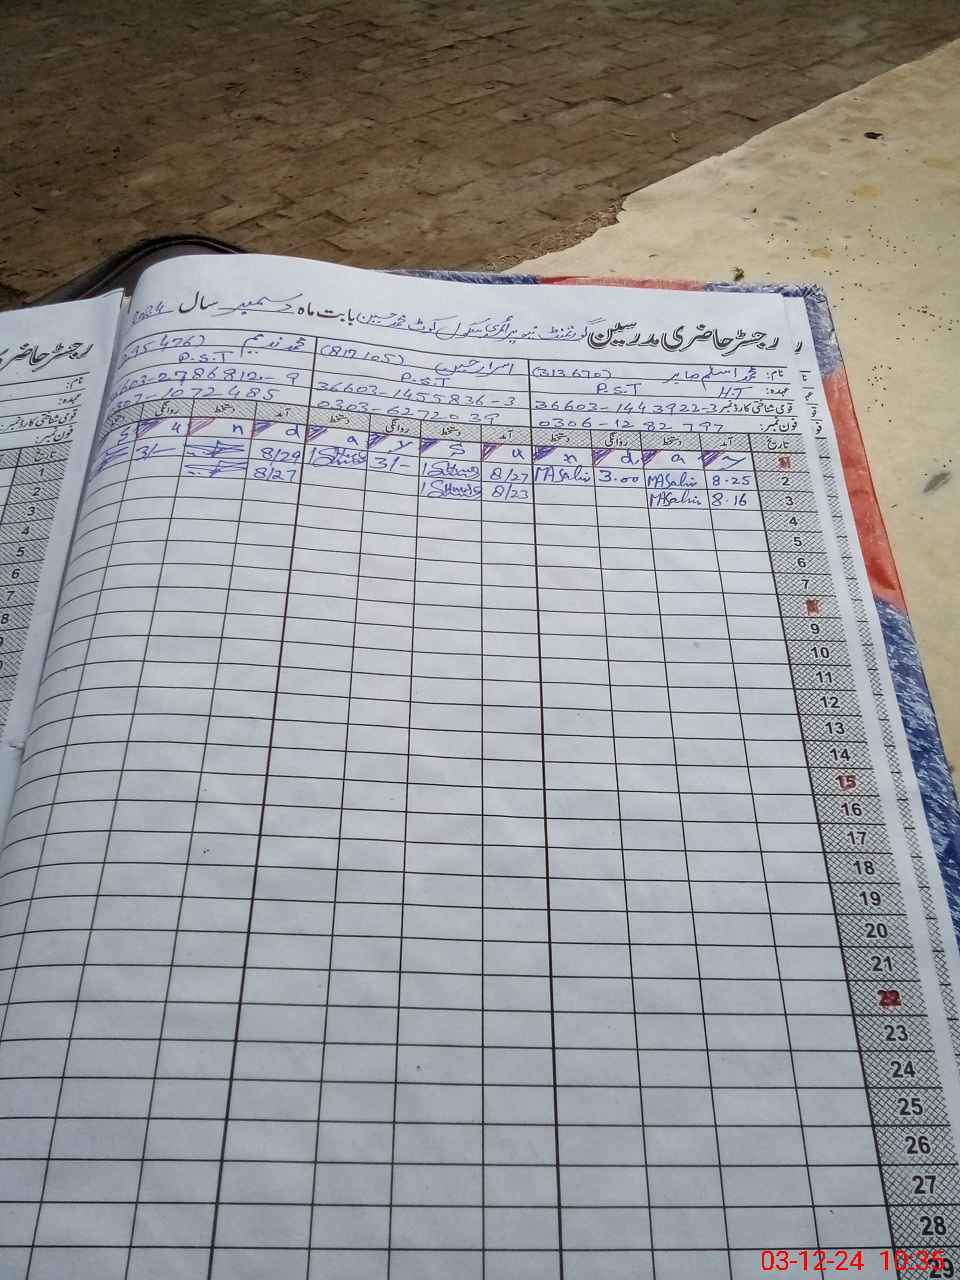 رجسٹر حاضری مدرسین گورنمنٹ پرائمری سکول کوٹ محمد حسین بابت ماہ دسمبر سال 2024
نام: محمد اسلم صابر (313670)
عہدہ: H.T P.S.T
قومی شناختی کارڈ نمبر 36603-1443922-3
فون نمبر: 0306-1282797
اسرار حسین (817105)
P.S.T
36603-1455836-3
0303-6272039
محمد ندیم 95476)
P.S.T
6603-2786912-9
0307-1072485
تاریخ آمد دستخط روانگی دستخط آمد دستخط روانگی دستخط آمد دستخط روانگی دستخط
S u n d a y S u n d a y
2 8.25 MASabir 3.00 MASabir 8/27 3/- 8/29 3/-
3 8.16 MASabir 8/23 8/27
4
5
6
7
9
10
11
12
13
14
15
16
17
18
19
20
21
22
23
24
25
26
27
28
29
رجسٹر حاضری
نام:
عہدہ:
قومی شناختی کارڈ نمبر
فون نمبر:
تاریخ
1
2
3
4
5
6
7
8
03-12-24 10:35